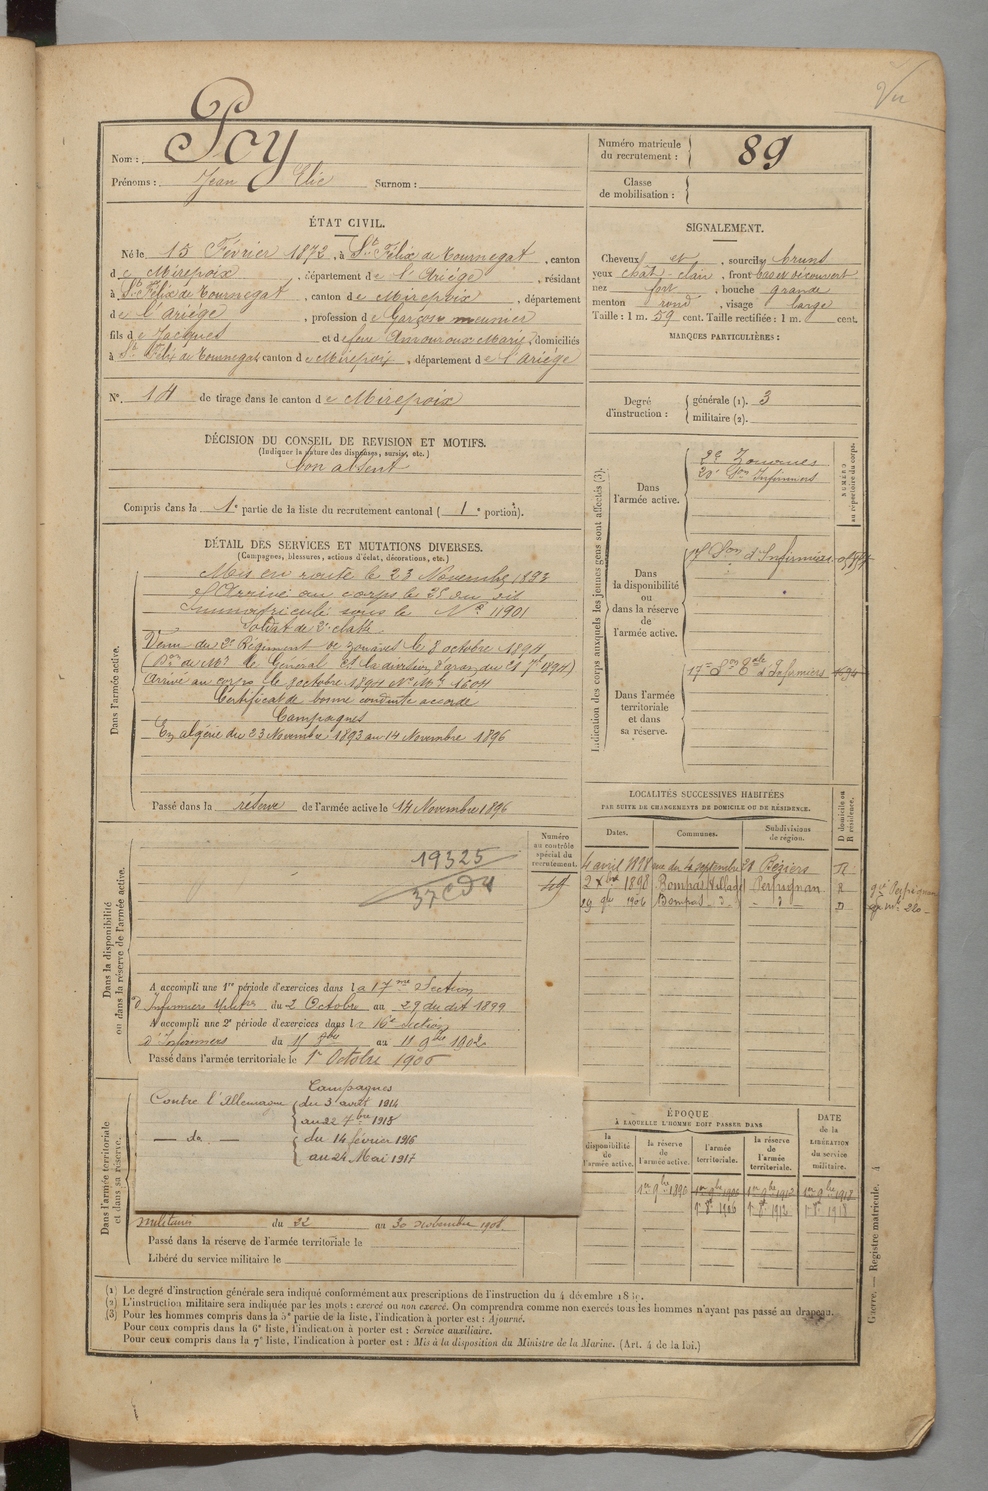 Vu
Nom : Poy
Prénoms : Jean Elie Surnom :
Numéro matricule du recrutement : 89
Classe de mobilisation :
ÉTAT CIVIL.
Né le 15 Février 1873, à St Félix de Tournegat, canton
de Mirepoix, département de l'Ariége, résidant
à St Félix de Tournegat, canton de Mirepoix, département
de l'Ariége, profession de Garçon meunier
fils de Jacques et de feue Amouroux Marie, domiciliés
à St Félix de Tournegat canton de Mirepoix, département de l'Ariége
N° 14 de tirage dans le canton de Mirepoix
SIGNALEMENT.
Cheveux et, sourcils bruns
yeux chat. clair, front bas et découvert
nez fort, bouche grande
menton rond, visage large
Taille : 1 m. 59 cent. Taille rectifiée : 1 m. cent.
MARQUES PARTICULIÈRES :
Degré d'instruction : générale (1). 3
militaire (2).
DÉCISION DU CONSEIL DE REVISION ET MOTIFS.
(Indiquer la nature des dispenses, sursis, etc.)
bon absent
Compris dans la 1e partie de la liste du recrutement cantonal ( 1e portion).
DÉTAIL DES SERVICES ET MUTATIONS DIVERSES.
(Campagnes, blessures, actions d'éclat, décorations, etc.)
Dans l'armée active.
Mis en route le 23 Novembre 1893
Arrivé au corps le 25 du dit
Immatriculé sous le No 11901
Soldat de 2e classe
Venu du 2e Régiment de zouaves le 8 octobre 1894
(Don de Mr le Général Ct la division d'Oran du 21 7bre 1894)
Arrivé au corps le 8 octobre 1894 No Mle 1604
Certificat de bonne conduite accordé
Campagnes
En algérie du 23 Novembre 1893 au 14 Novembre 1896
Passé dans la réserve de l'armée active le 14 Novembre 1896
Indication des corps auxquels les jeunes gens sont affectés (3).
NUMÉRO au répertoire du corps.
Dans l'armée active.
2e Zouaves
20e Son Infirmiers
Dans la disponibilité ou dans la réserve de l'armée active.
Son d'Infirmiers
Dans l'armée territoriale et dans sa réserve.
17e Son d'Infirmiers
LOCALITÉS SUCCESSIVES HABITÉES
PAR SUITE DE CHANGEMENTS DE DOMICILE OU DE RÉSIDENCE.
D domicile ou R résidence.
Dates. Communes. Subdivisions de région.
4 avril 1898 rue du 4 septembre 21 Béziers R
2 xbre 1898 Bompas Village Perpignan R
29 1906 Bompas d° d° D
Dans la disponibilité ou dans la réserve de l'armée active.
Numéro au contrôle spécial du recrutement.
19325
A accompli une 1re période d'exercices dans la 17me Section
d'Infirmiers Milres du 2 Octobre au 29 du dit 1899
A accompli une 2e période d'exercices dans la 16e Section
d'Infirmiers du 15 8bre au 11 9bre 1902
Passé dans l'armée territoriale le 1er Octobre 1906
Dans l'armée territoriale et dans sa réserve.
Campagnes
Contre l'Allemagne du 3 août 1914
au 22 7bre 1915
— do — du 14 février 1916
au 24 Mai 1917
militaire du 22 au 30 novembre 1908
Passé dans la réserve de l'armée territoriale le
Libéré du service militaire le
ÉPOQUE
À LAQUELLE L'HOMME DOIT PASSER DANS
la disponibilité de l'armée active.
la réserve de l'armée active.
l'armée territoriale.
la réserve de l'armée territoriale.
DATE de la LIBÉRATION du service militaire.
1er 9bre 1896 1er 9bre 1906 1er 9bre 1912 1er 9bre 1918
1er 8bre 1906 1er 8bre 1912 1er 8bre 1918
(1) Le degré d'instruction générale sera indiqué conformément aux prescriptions de l'instruction du 4 décembre
(2) L'instruction militaire sera indiquée par les mots : exercé ou non exercé. On comprendra comme non exercés tous les hommes n'ayant pas passé au drapeau.
(3) Pour les hommes compris dans la 5e partie de la liste, l'indication à porter est : Ajourné.
Pour ceux compris dans la 6e liste, l'indication à porter est : Service auxiliaire.
Pour ceux compris dans la 7e liste, l'indication à porter est : Mis à la disposition du Ministre de la Marine. (Art. 4 de la loi.)
Guerre. — Registre matricule. 4